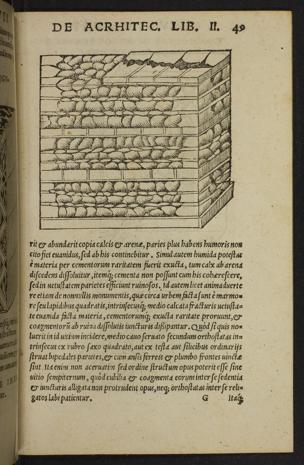 DE ACRHITEC. LIB. II. 49
rit & abundarit copia calcis & arenæ, paries plus habens humoris non
cito fiet euanidus, sed ab his continebitur. Simul autem humida potestas
è materia per cementorum raritatem fuerit exucta, tum calx ab arena
discedens dissoluitur, itemq; cementa non possunt cum his cohærescere,
sed in uetustatem parietes efficiunt ruinosos. Id autem licet animaduerte
re etiam de nonnullis monumentis, quæ circa urbem facta sunt è marmo-
re seu lapidibus quadratis, intrinsecusq; medio calcata fracturis uetusta-
te euanida facta materia, cementorumq; exucta raritate proruunt, &
coagmentorũ ab ruina dissolutis iuncturis dissipantur. Quòd si quis no-
luerit in id uitium incidere, medio cauo seruato secundum orthostatas in-
trinsecus ex rubro saxo quadrato, aut ex testa aut silicibus ordinarijs
struat bipedales parietes, & cum ansis ferreis & plumbo frontes uinctæ
sint. Ita enim non aceruatim sed ordine structum opus poterit esse sine
uitio sempiternum, quòd cubilia & coagmenta eorum inter se sedentia
& iuncturis alligata non protrudent opus, neq; orthostatas inter se reli-
gatos labi patientur. G Itaq;